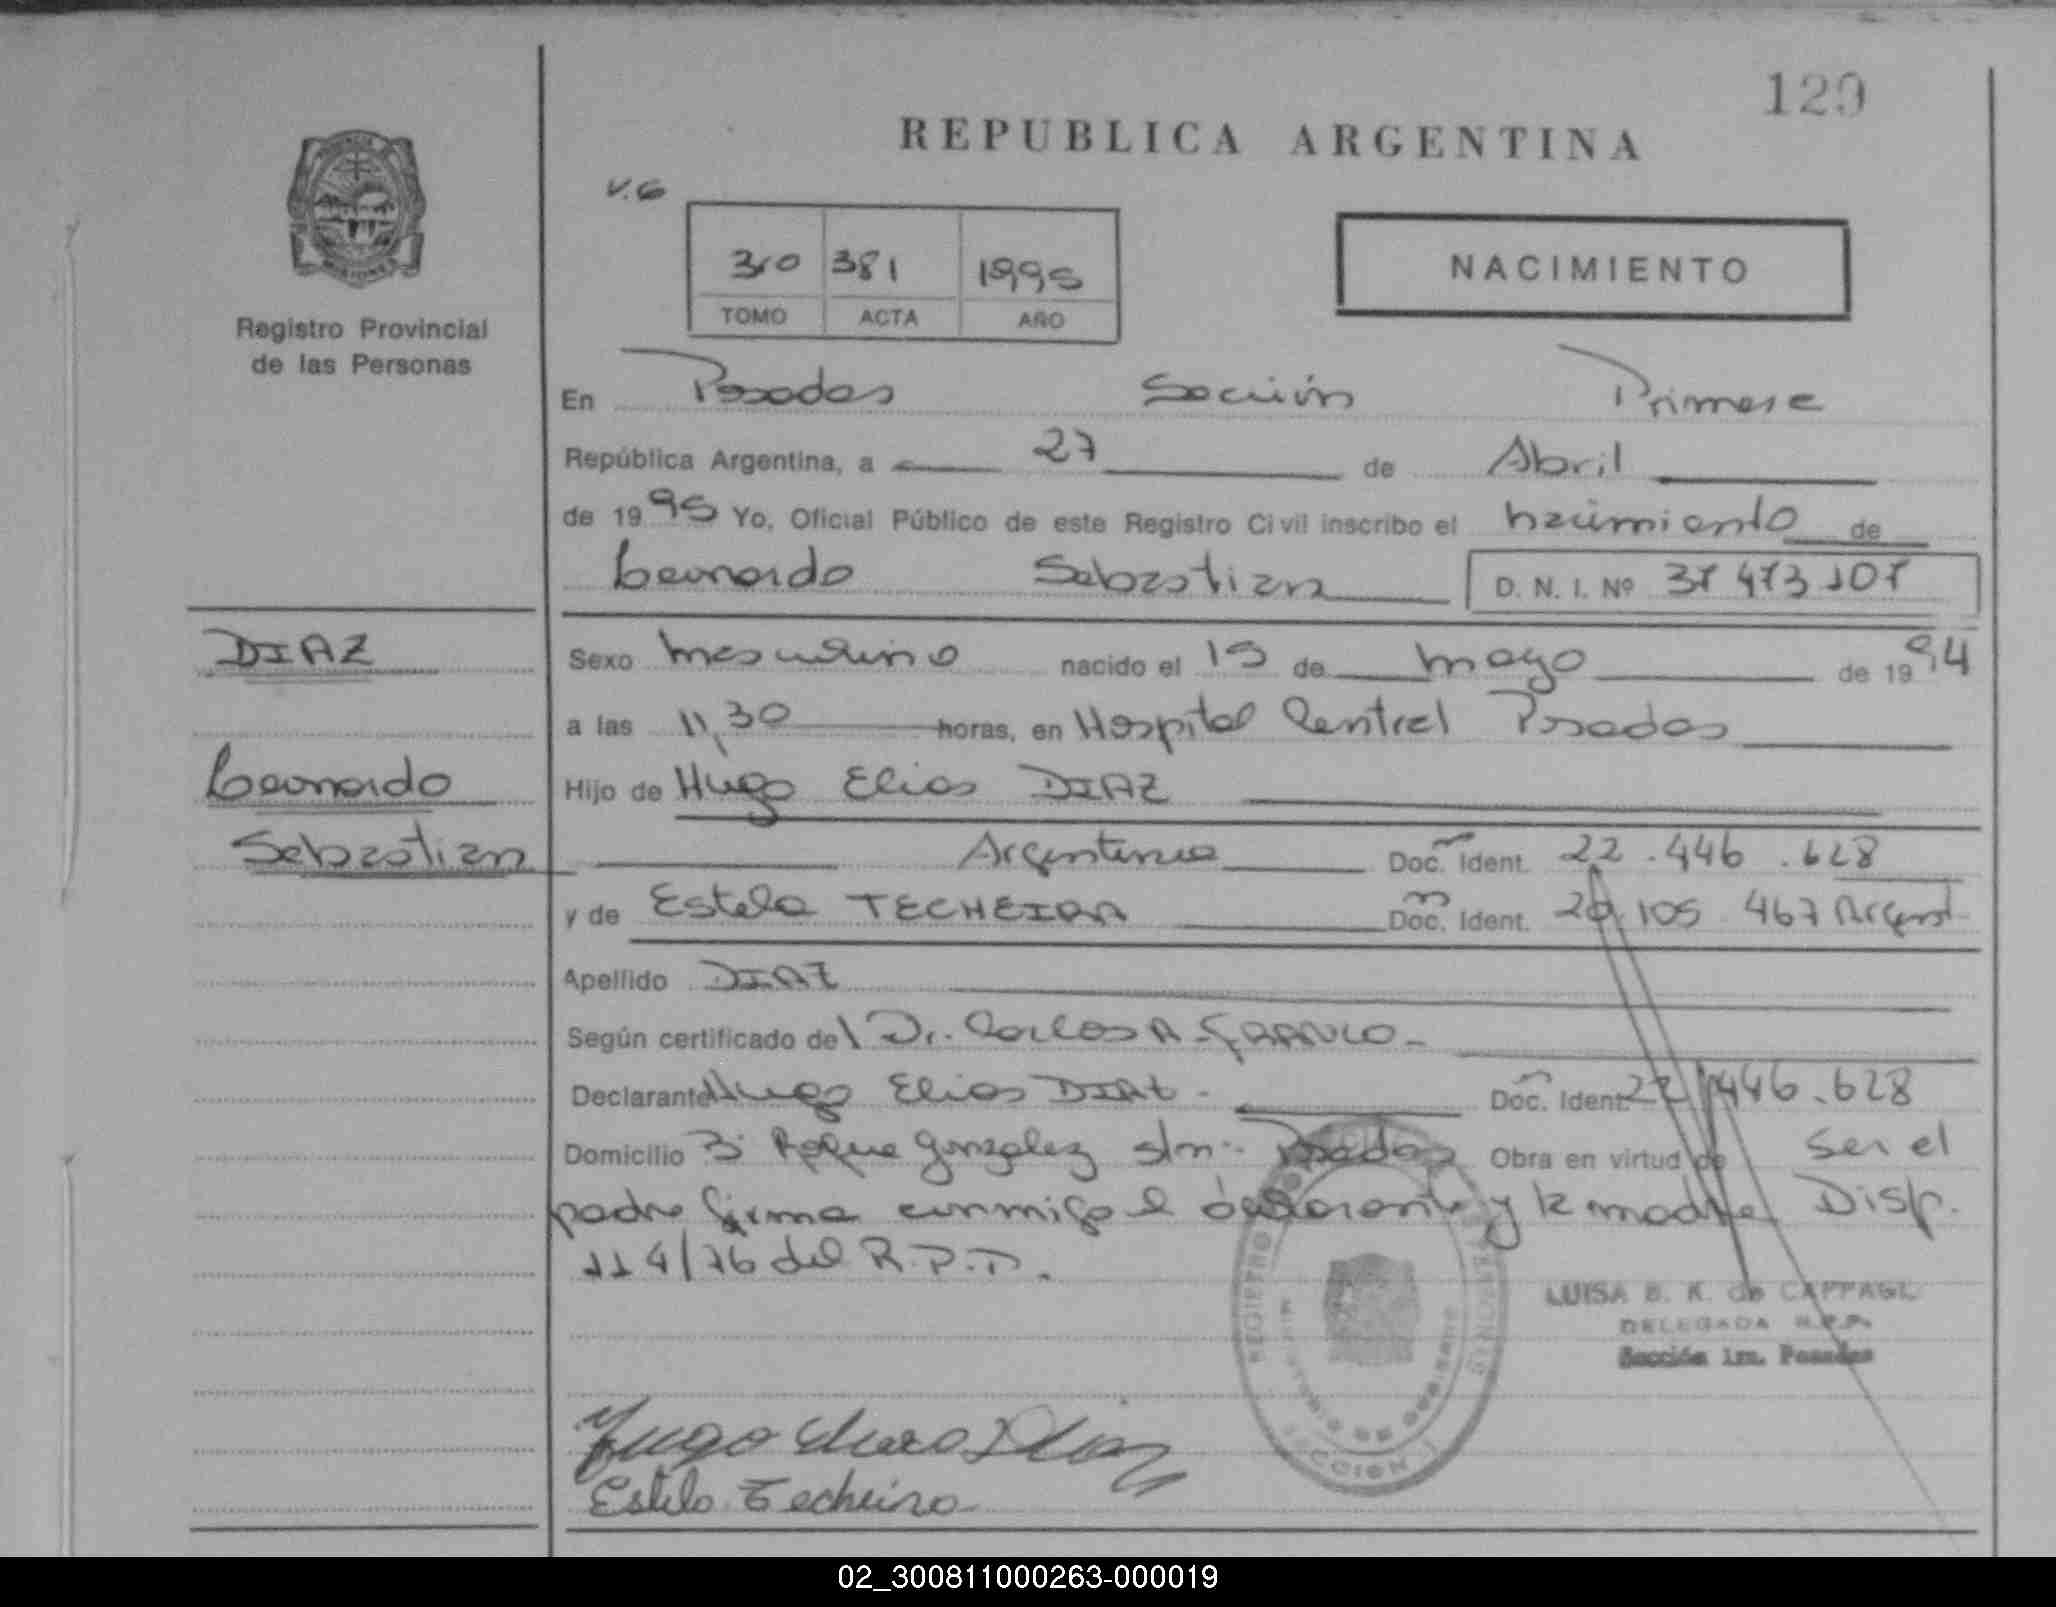 129
REPUBLICA ARGENTINA
V.G
310 381 1995
TOMO ACTA AÑO
NACIMIENTO
MISIONES
Registro Provincial
de las Personas
En Posadas Sección Primera
República Argentina, a 27 de Abril
de 1995 Yo, Oficial Público de este Registro Civil inscribo el nacimiento de
Leonardo Sebastian D. N. I. Nº 37 473 107
DIAZ
Sexo masculino nacido el 15 de mayo de 1994
a las 11,30 horas, en Hospital Central Posadas
Leonardo
Hijo de Hugo Elias DIAZ
Sebastian
Argentina Doc. Ident. 22.446.628
y de Estela TECHEIRA Doc. Ident. 20 105 467 Argent
Apellido DIAZ
Según certificado del Dr. Carlos A.
Declarante Hugo Elias DIAZ - Doc. Ident. 22 446.628
Domicilio Roque Gonzalez s/n - Posadas Obra en virtud de ser el
padre firma conmigo el declarante y la madre Disp.
114/76 del R.P.P.
LUISA B. K. de
DELEGADA R.P.P.
Sección 1ra. Posadas
Hugo Elias Diaz
Estela Techeira
02_300811000263-000019